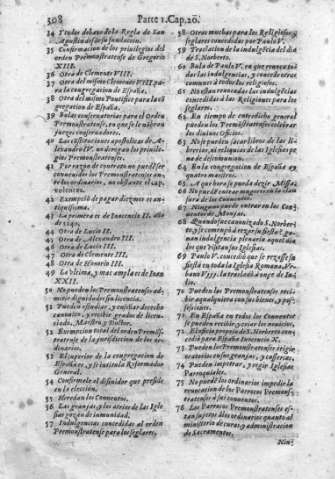 508 Parte 1. Cap. 26.
34 Titulos debaxo de la Regla de San
Agustin desde su fundacion.
35 Confirmacion de los privilegios del
orden Premonstratense de Gregorio
XIII.
36 Otra de Clemente VIII.
37 Del mismo Clemente VIII. pa-
ra la congregacion de España.
38 Otra del mismo Pontifice para la cõ
gregacion de España.
39 Bulas conservatorias para el Orden
Premonstratense, en que se nõbran
juezes conservadores.
40 Las constituciones apostolicas de A-
lexandro IV. no derogan los privile-
gios Premonstratenses.
41 Por razon de contrato no puedẽ ser
convenidos los Premonstratenses an-
te los ordinarios, no obstante el cap.
volentes.
42 Exempcion de pagar diezmos es an-
tiquissima.
43 La primera es de Innocencio II. año
de 1140.
44 Otra de Lucio II.
45 Otra de Alexandro III.
46 Otra de Lucio III.
47 Otra de Clemente III.
48 Otra de Honorio III.
49 La vltima, y mas amplia es de Iuan
XXII.
50 No pueden los Premonstratenses ad-
mitir dignidades sin licencia.
51 Pueden estudiar, y enseñar derecho
canonico, y recibir grados de licen-
ciado, Maestro, y Doctor.
52 Exempcion total del orden Premonst-
tratense de la jurisdicion de los or-
dinarios.
53 El superior de la congregacion de
España es, y se intitula Reformador
General.
54 Confirmale el difinidor que preside
en la eleccion.
55 Heredan los Conventos.
56 Las granjas, y los atrios de las Igle
sias gozan de inmunidad.
57 Indulgencias concedidas al orden
Premonstratense para los seglares.
58 Otras muchas para los Religiosos, y
seglares concedidas por Paulo V.
59 Traslacion de la indulgẽcia del dia
de S. Norberto.
60 Bula de Paulo V. en que revoca to-
das las indulgencias, y concede otras
comunes à todas las ordenes.
61 No estan revocadas las indulgẽcias
concedidas à los Religiosos para los
seglares.
62 En tiempo de entredicho general
pueden los Premonstratẽses celebrar
los divinos Oficios.
63 No pueden sacar libros de las li-
brerias, ni reliquias de las Iglesias so pe
na de descomunion.
64 En la congregacion de España ay
quatro maestros.
65 A que hora se pueda dezir Missa.
66 No puede entrar muger en la clau-
sura de los Conventos.
67 Ninguno puede entrar en los Con-
ventos de Monjas.
68 Quando fue canonizado S. Norber-
to, y se començò à rezar su fiesta se ga-
nan indulgencia plenaria aquel dia
los que visitan sus Iglesias.
69 Paulo V. concediò que se rezasse su
fiesta en toda la Iglesia Romana. Vr-
bano VIII. la trasladò à onze de Iu-
lio.
70 Pueden los Premonstratenses reci-
bir à qualquiera con sus bienes, y pos-
sessiones.
71 En España en todos los Conventos
se pueden recibir, y criar los novicios.
72 El oficio propio de S. Norberto con-
cediò para España Inocencio X.
73 Pueden los Premonstratenses erigir
oratorios en sus granjas, y caserias.
74 Pueden impetrar, y regir Iglesias
Parroquiales.
75 No puede los ordinarios impedir la
revocacion de los Parrocos Premons-
tratenses à sus conventos.
76 Los Parrocos Premonstratenses es-
tan sugetos à los ordinarios quanto al
ministerio de curas, y administracion
de Sacramentos.